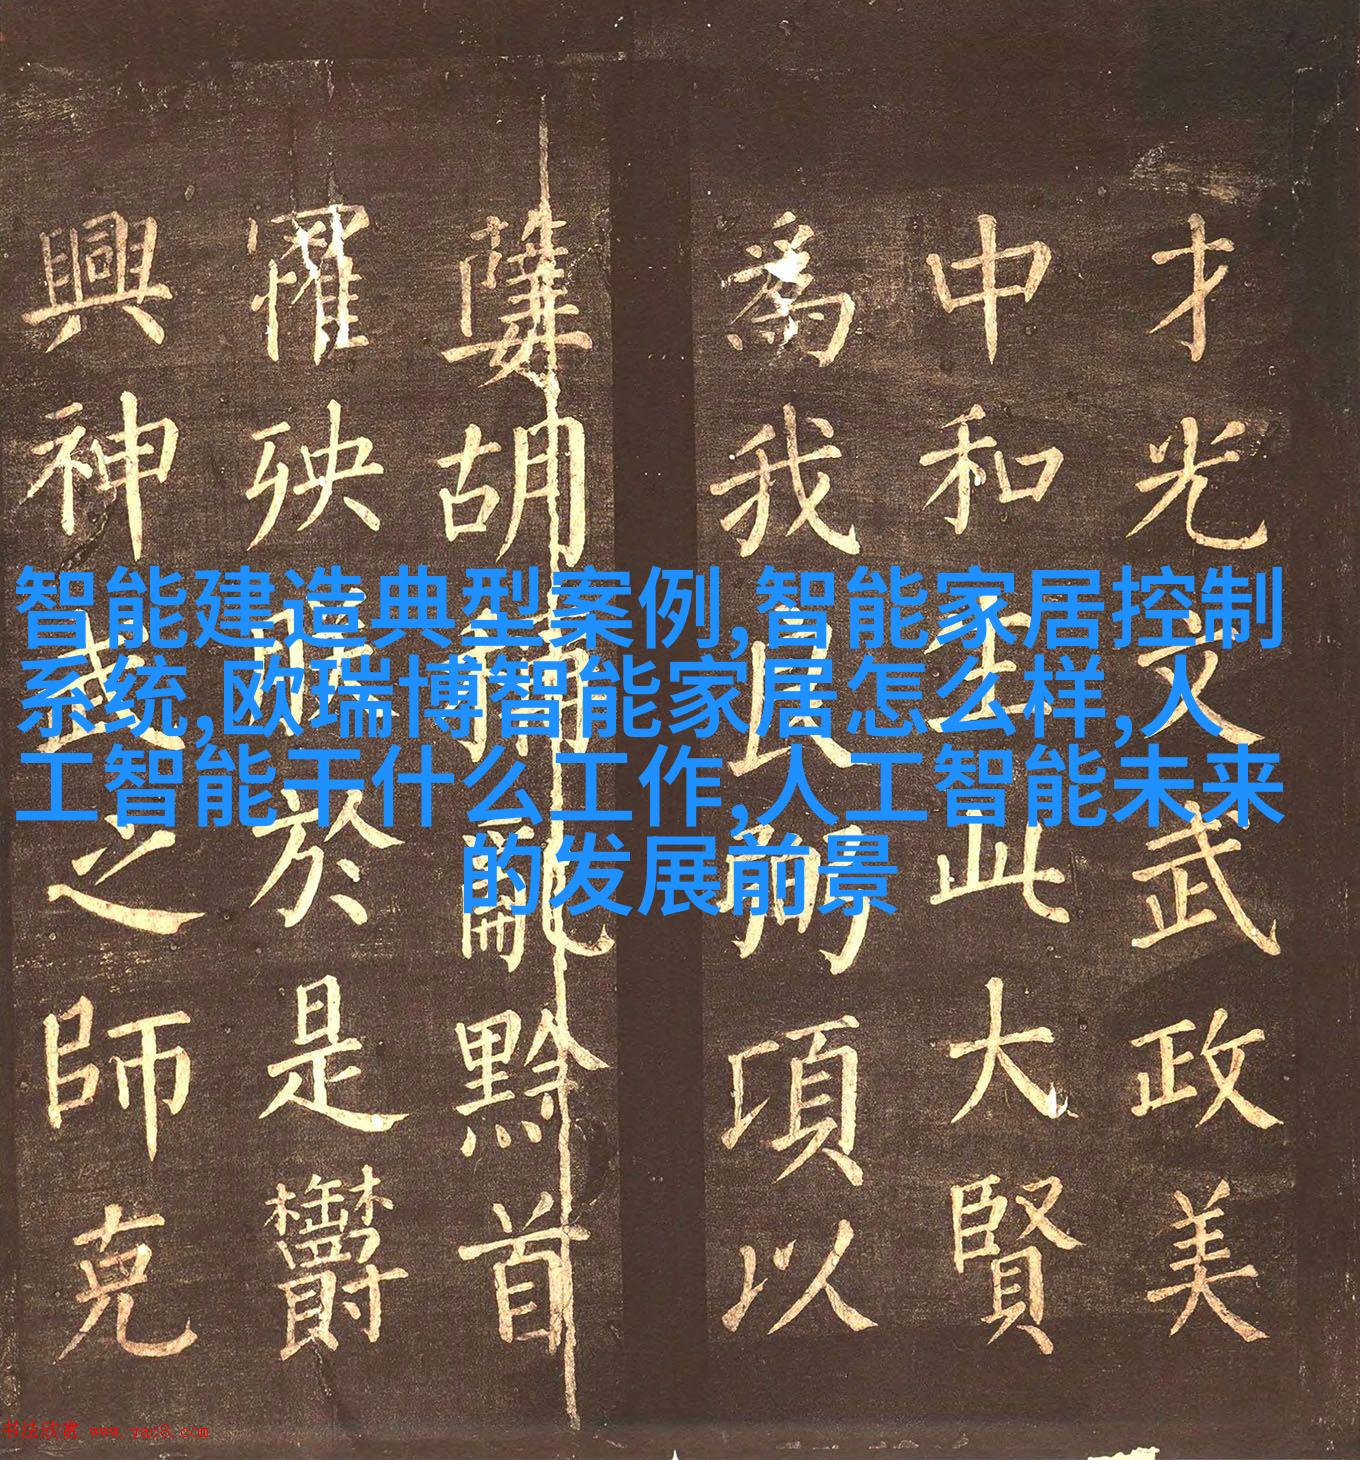 智能建造典型案例,智能家居控制
系统,欧瑞博智能家居怎么样,人
工智能干什么工作,人工智能未来
的发展前景
才光文武政美
中和生此大賢
為我良弼頃以
胡亂黔首
罹殃於是欝
興神之師克
书法欣赏 www.yac8.com